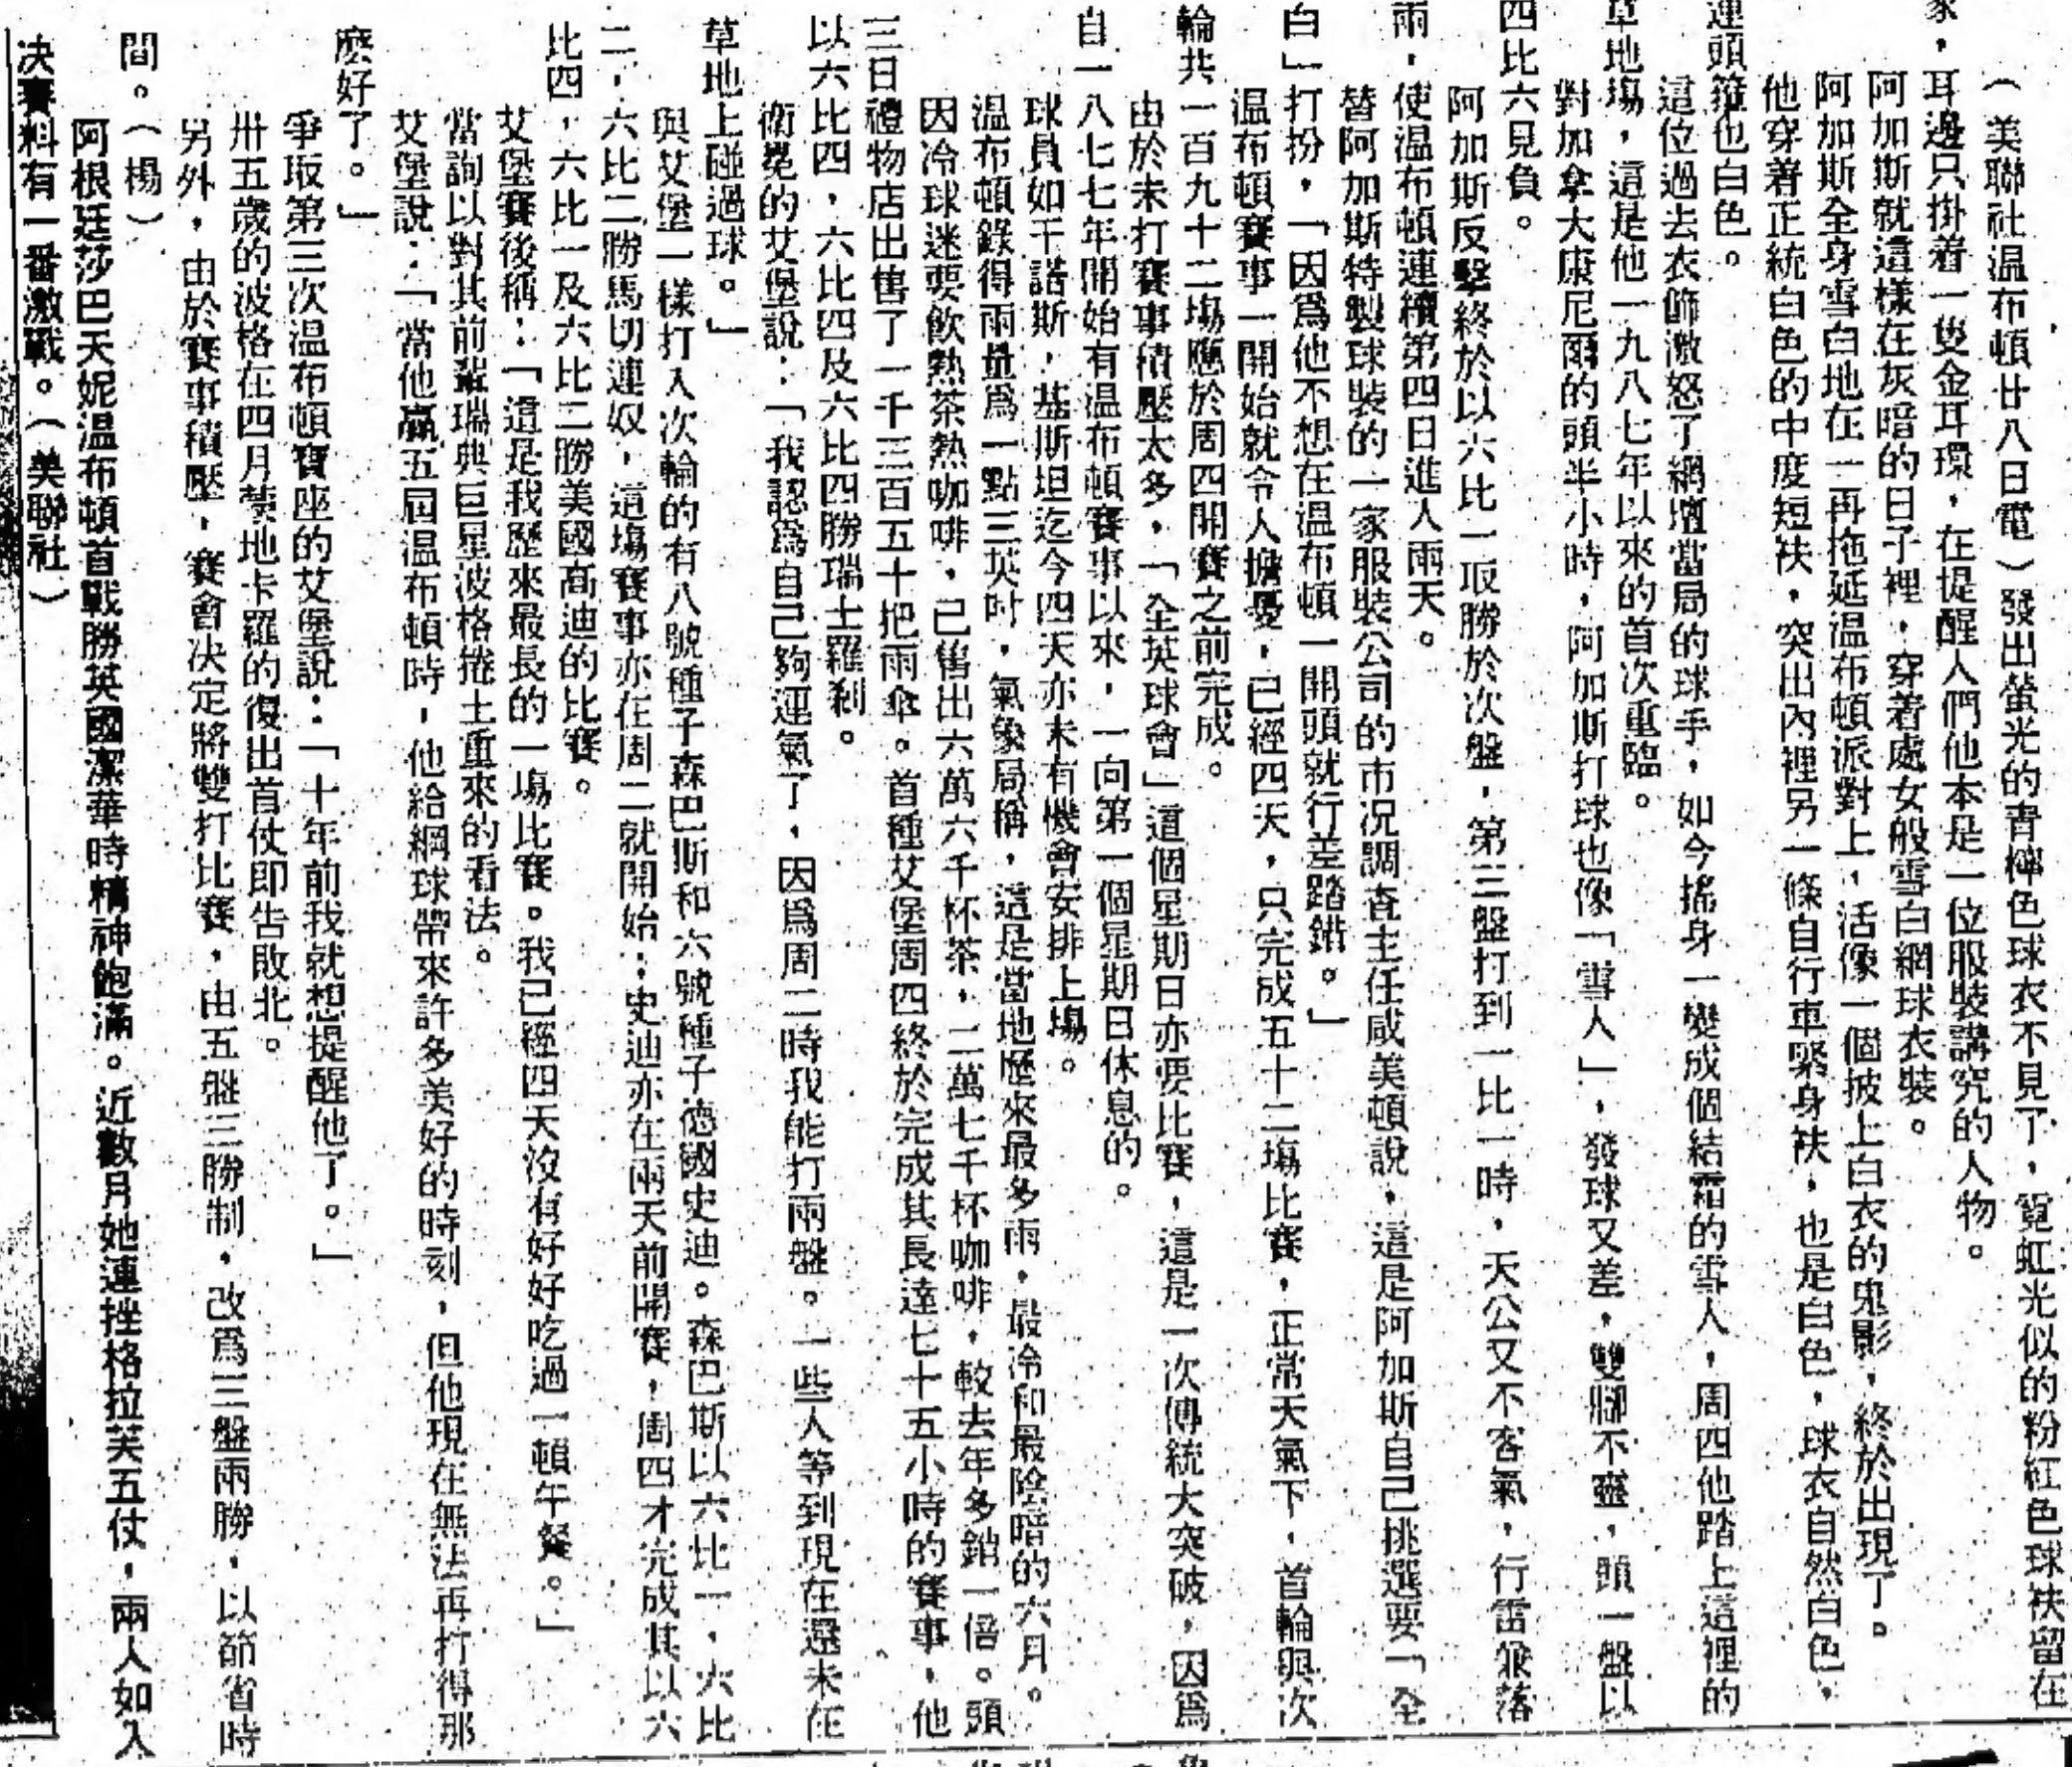 （美聯社温布頓廿八日電）發出螢光的青檸色球衣不見了，霓虹光似的粉紅色球袂留在
家，耳邊只掛着一隻金耳環，在提醒人們他本是一位服裝講究的人物。
阿加斯就這樣在灰暗的日子裡，穿着處女般雪白網球衣裝。
阿加斯全身雪白地在一再拖延温布頓派對上，活像一個披上白衣的鬼影，終於出現了。
他穿着正統白色的中度短袂，突出內裡另一條自行車緊身袂，也是白色，球衣自然白色，
連頭箍也白色。
這位過去衣飾激怒了網壇當局的球手，如今搖身一變成個結霜的雪人，周四他踏上這裡的
草地塲，這是他一九八七年以來的首次重臨。
對加拿大康尼爾的頭半小時，阿加斯打球也像「雪人」，發球又差，雙脚不靈，頭一盤以
四比六見負。
阿加斯反擊終於以六比一取勝於次盤，第三盤打到一比一時，天公又不客氣，行雷兼落
雨，使温布頓連續第四日進入雨天。
替阿加斯特製球裝的一家服裝公司的市况調查主任咸美頓說，這是阿加斯自己挑選要「全
白」打扮，「因爲他不想在温布頓一開頭就行差踏錯。」
温布頓賽事一開始就令人擔憂，已經四天，只完成五十二塲比賽，正常天氣下，首輪與次
輪共一百九十二塲應於周四開賽之前完成。
由於未打賽事積壓太多，「全英球會」這個星期日亦要比賽，這是一次傳統大突破，因爲
自一八七七年開始有温布頓賽事以來，一向第一個星期日休息的。
球員如干諾斯，基斯坦迄今四天亦未有機會安排上塲。
温布頓錄得雨量爲一點三英吋，氣象局稱，這是當地歷來最多雨，最冷和最陰暗的六月。
因冷球迷要飲熱茶熱咖啡，已售出六萬六千杯茶，二萬七千杯咖啡，較去年多銷一倍。頭
三日禮物店出售了一千三百五十把雨傘。首種艾堡周四終於完成其長達七十五小時的賽事，他
以六比四，六比四及六比四勝瑞士羅刹。
衛冕的艾堡說：「我認爲自己夠運氣了，因爲周二時我能打兩盤。一些人等到現在還未在
草地上碰過球。」
與艾堡一樣打入次輪的有八號種子森巴斯和六號種子德國史迪。森巴斯以六比一，六比
二，六比二勝馬切連奴，這塲賽事亦在周二就開始；史迪亦在兩天前開賽，周四才完成其以六
比四，六比一及六比二勝美國高迪的比賽。
艾堡賽後稱：「這是我歷來最長的一塲比賽。我已經四天沒有好好吃過一頓午餐。」
當詢以對其前輩瑞典巨星波格捲土重來的看法。
艾堡說：「當他贏五屆温布頓時，他給網球帶來許多美好的時刻，但他現在無法再打得那
麽好了。」
爭取第三次温布頓寶座的艾堡說：「十年前我就想提醒他了。」
卅五歲的波格在四月蒙地卡羅的復出首仗即告敗北。
另外，由於賽事積壓，賽會决定將雙打比賽，由五盤三勝制，改爲三盤兩勝，以節省時
間。（楊）
阿根廷莎巴天妮温布頓首戰勝英國潔華時精神飽滿。近數月她連挫格拉芙五仗，兩人如入
决賽料有一番激戰。（美聯社）